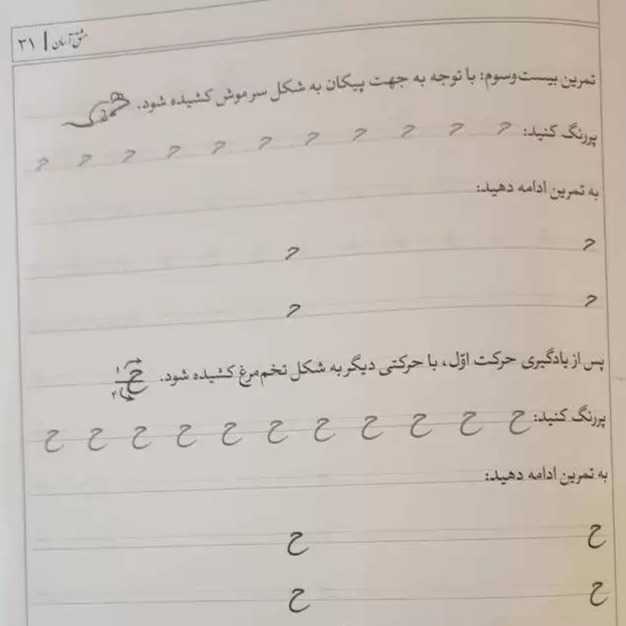 مشق آسان | ۳۱
تمرین بیست‌وسوم: با توجه به جهت پیکان به شکل سر موش کشیده شود.
پررنگ کنید:
به تمرین ادامه دهید:
پس از یادگیری حرکت اوّل، با حرکتی دیگر به شکل تخم‌مرغ کشیده شود. ۱ ح ۲
پررنگ کنید: ح ح ح ح ح ح ح ح ح ح ح
به تمرین ادامه دهید:
ح ح
ح ح